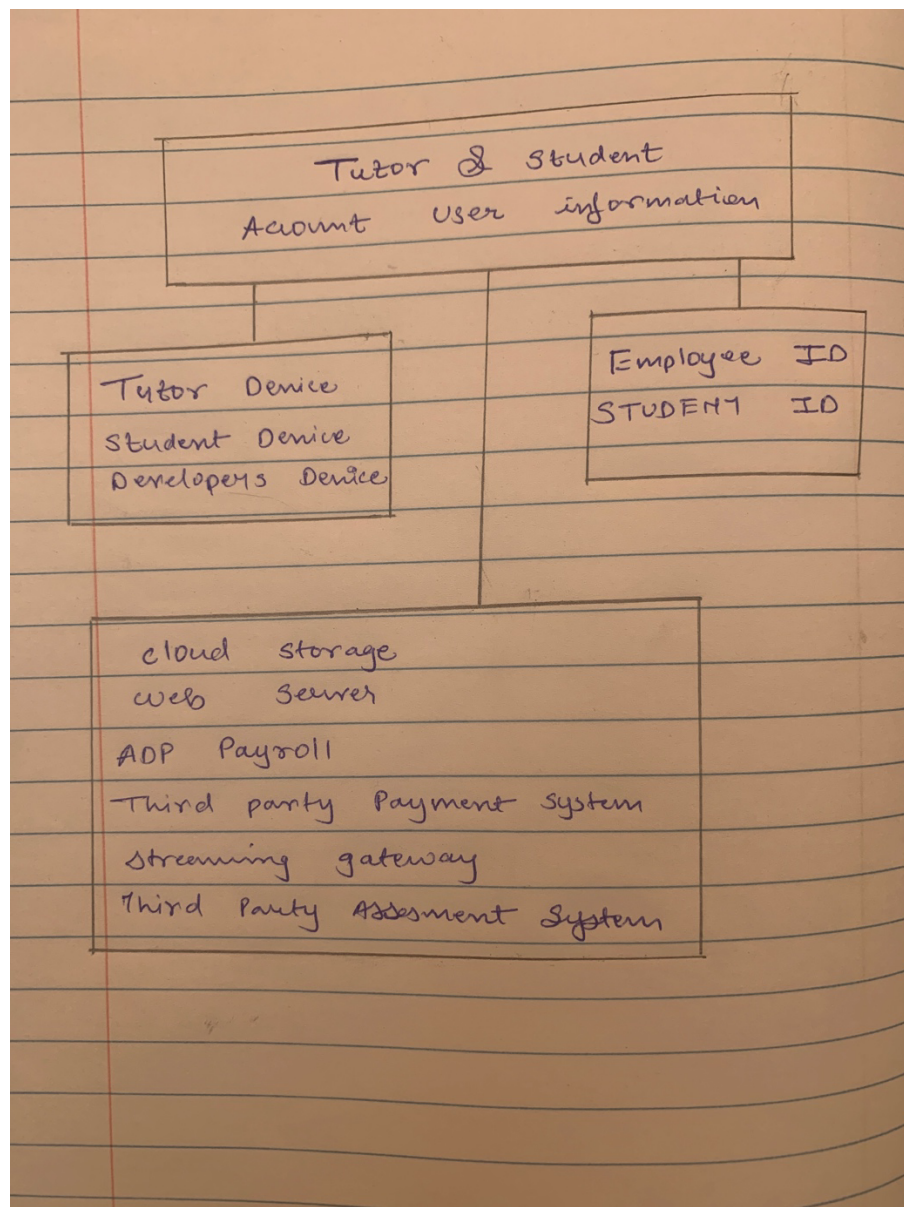 Tutor & Student
Account User information
Tutor Device
Student Device
Developers Device
Employee ID
STUDENT ID
cloud storage
web Server
ADP Payroll
Third party Payment System
streaming gateway
Third Party Assesment System